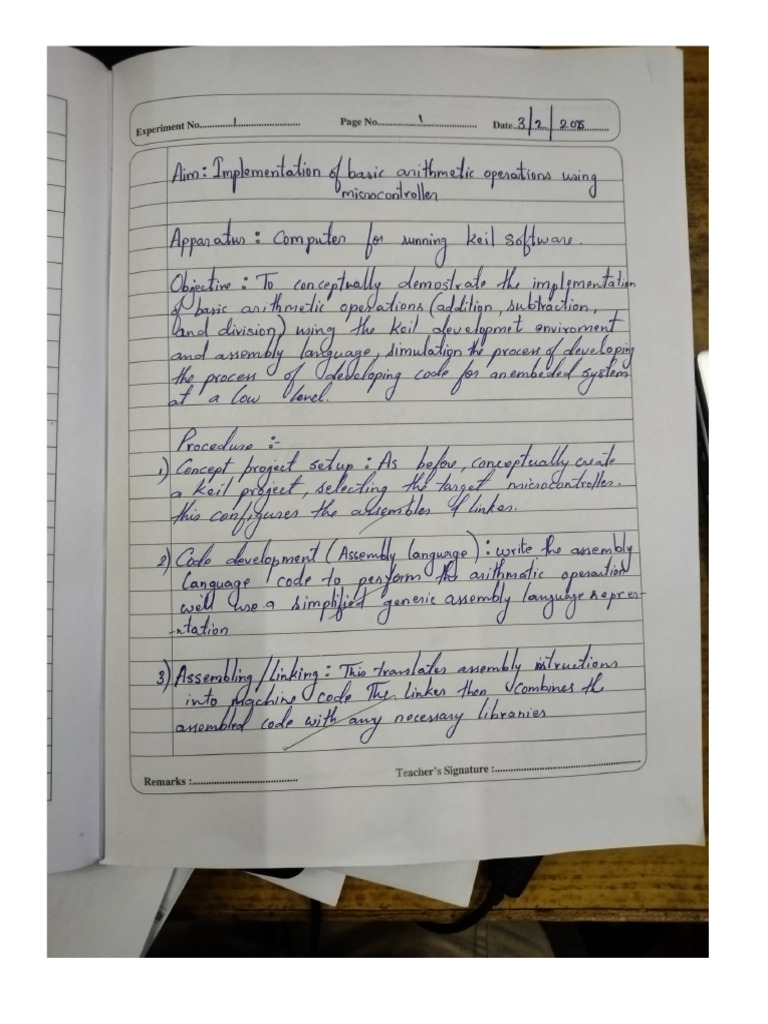 Experiment No. 1 Page No. 1 Date. 3/2/205
Aim: Implementation of basic arithmetic operations using
microcontroller
Apparatus: Computer for running keil software.
Objective: To conceptually demostrate the implementation
of basic arithmetic operations (addition, subtraction,
and division) using the keil developmet enviroment
and assembly language, simulation the process of developing
the process of developing code for an embeded system
at a low level.
Procedure :-
1) Concept project setup: As before, conceptually create
a keil project, selecting the target microcontroller.
this configures the assembler & linker.
2) Code development (Assembly language): write the assembly
language code to perform the arithmatic operaction
well use a simplified generic assembly language repres-
-ntation
3) Assembling/Linking: This translates assembly instructions
into machine code The linker then combines the
assembled code with any necessary libraries
Remarks : Teacher's Signature :